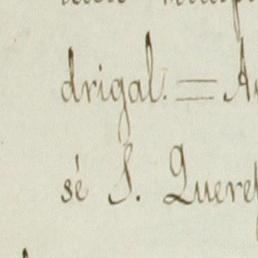 drigal. = A
sé S. Quere